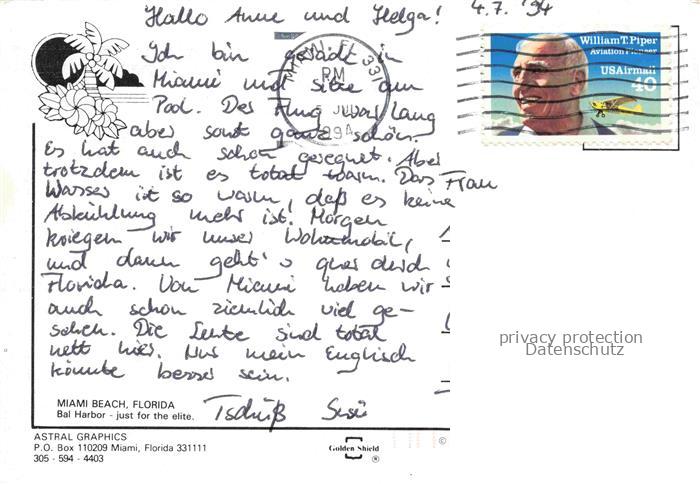 Hallo Anne und Helga!
4.7. '94
Ich bin gerade in
Miami und sitze am
Pool. Der Flug war lang
aber sonst ganz schön.
Es hat auch schon geregnet. Aber
trotzdem ist es total warm. Das
Wasser ist so warm, daß es keine
Abkühlung mehr ist. Morgen
kriegen wir unser Wohnmobil,
und dann geht's quer durch
Florida. Von Miami haben wir
auch schon ziemlich viel ge-
sehen. Die Leute sind total
nett hier. Nur mein Englisch
könnte besser sein.
Tschüß Susi
Frau
MIAMI, FL 331
PM
JUL
William T. Piper
Aviation Pioneer
USAirmail
40
privacy protection
Datenschutz
MIAMI BEACH, FLORIDA
Bal Harbor - just for the elite.
ASTRAL GRAPHICS
P.O. Box 110209 Miami, Florida 331111
305 - 594 - 4403
Golden Shield
®
©